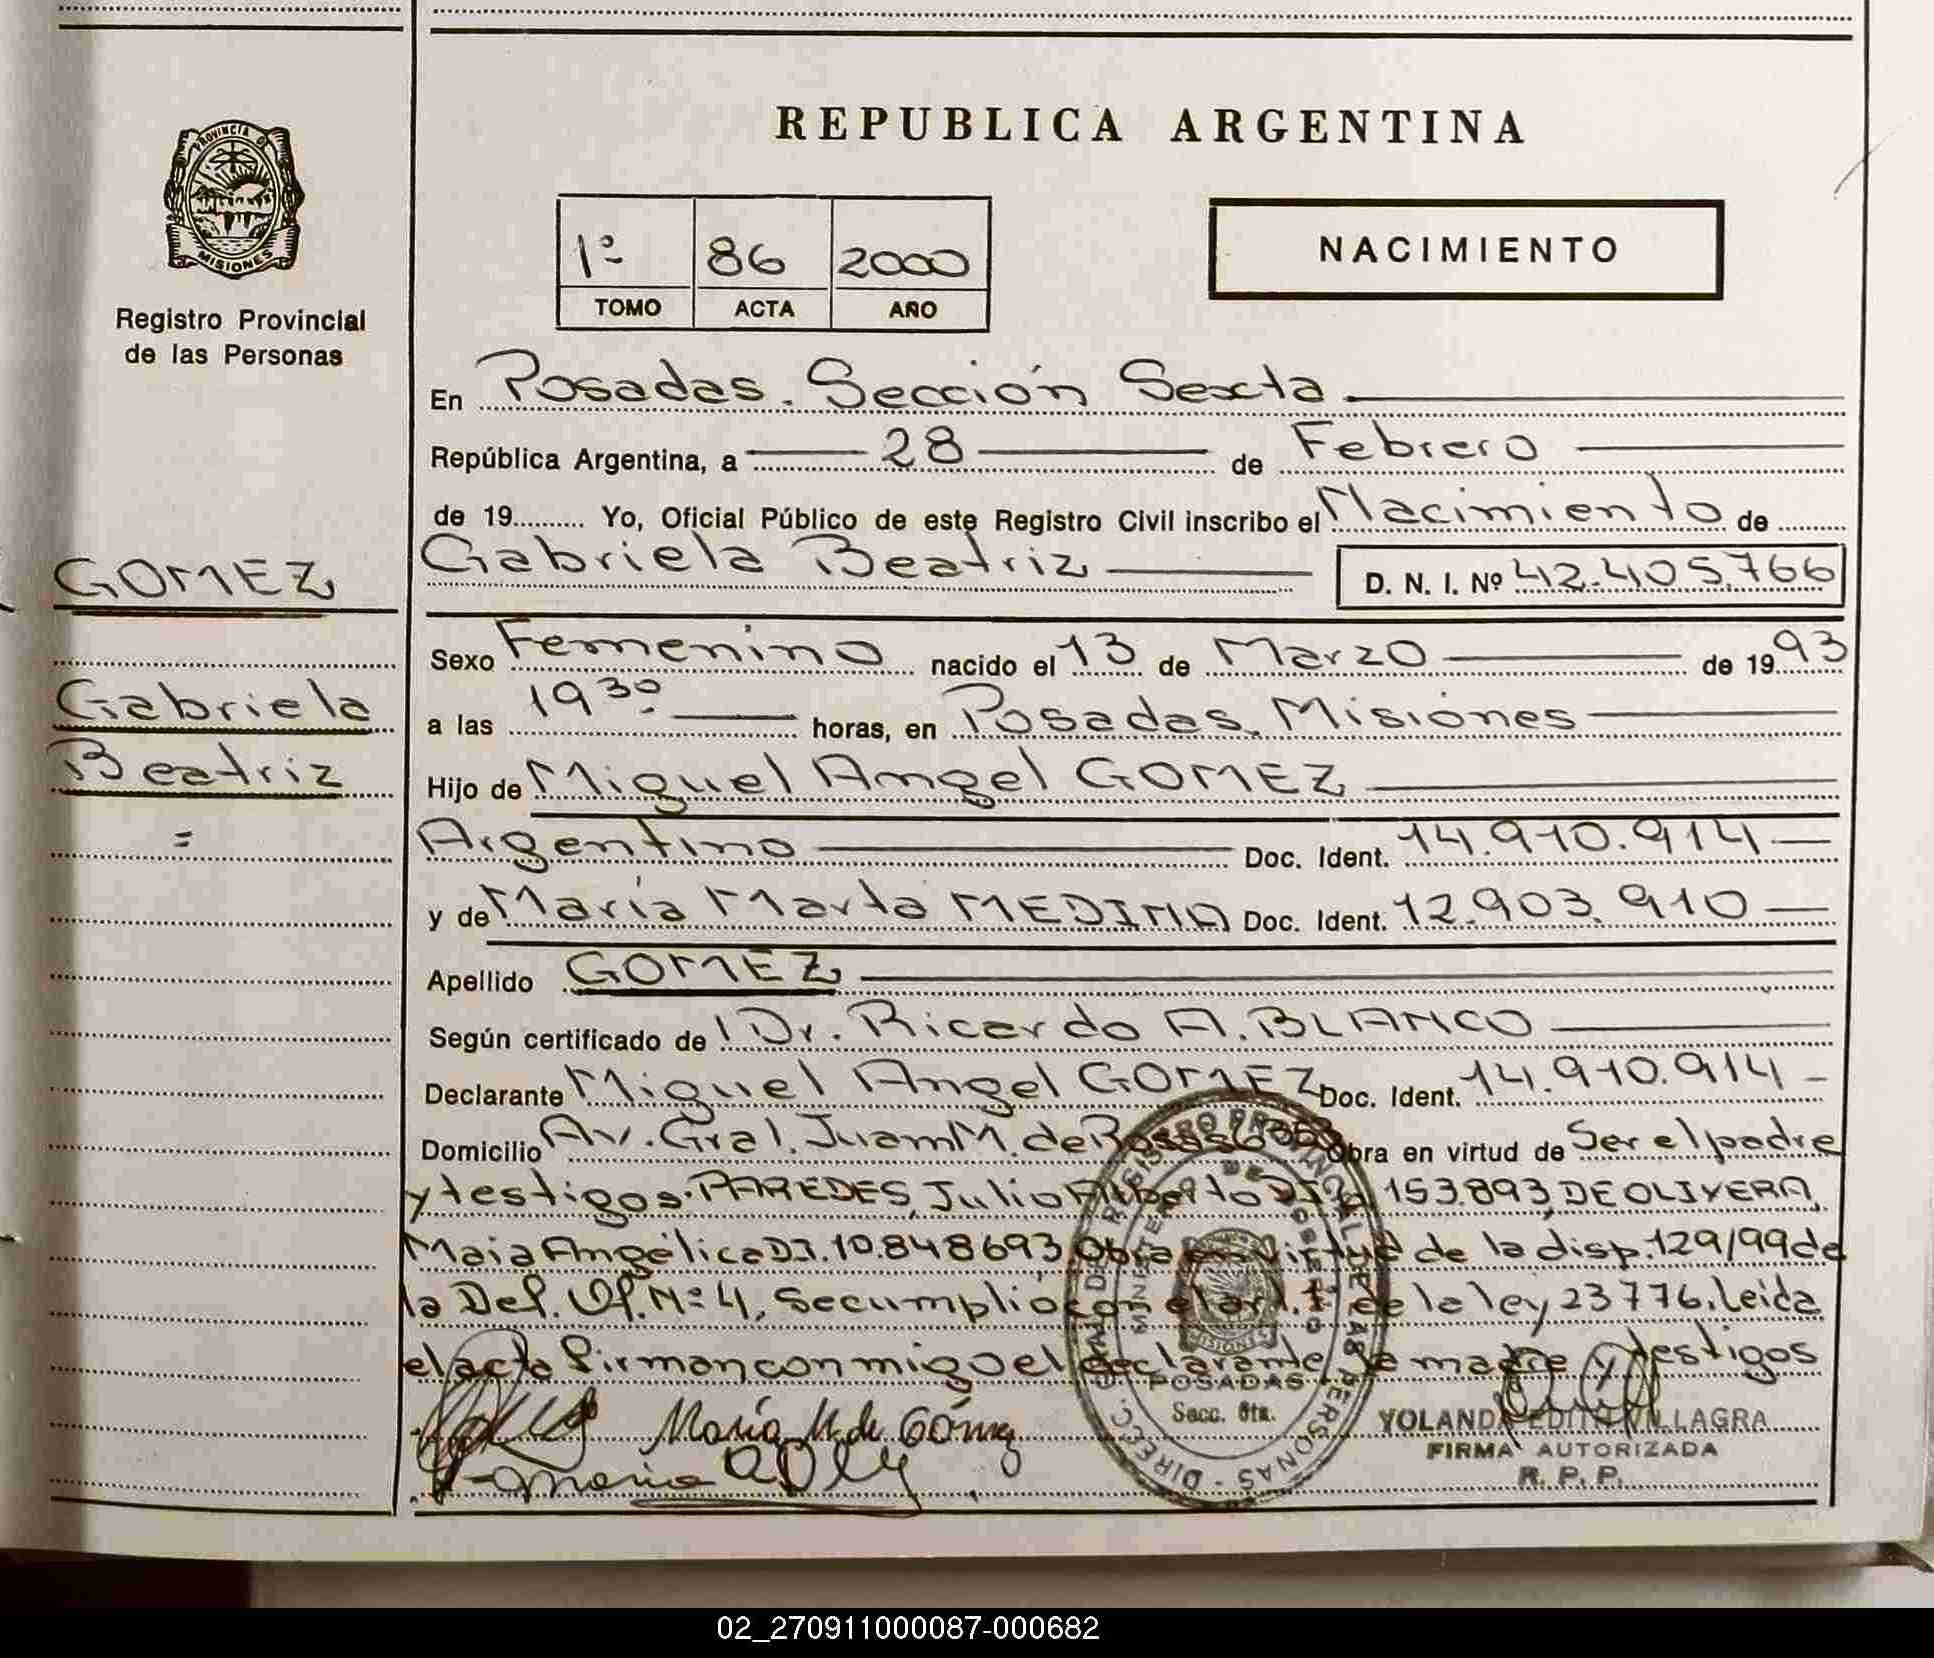 REPUBLICA ARGENTINA
PROVINCIA DE
MISIONES
Registro Provincial
de las Personas
1º 86 2000
TOMO ACTA AÑO
NACIMIENTO
En Posadas. Sección Sexta
República Argentina, a 28 de Febrero
de 19 Yo, Oficial Público de este Registro Civil inscribo el Nacimiento de
Gabriela Beatriz D. N. I. Nº 42.405.766
GOMEZ
Sexo Femenino nacido el 13 de Marzo de 19 93
Gabriela
a las 19 30 horas, en Posadas. Misiones
Beatriz
Hijo de Miguel Angel GOMEZ
=
Argentino Doc. Ident. 14.910.914
y de María Marta MEDINA Doc. Ident. 12.903.910
Apellido GOMEZ
Según certificado de Dr. Ricardo A. BLANCO
Declarante Miguel Angel GOMEZ Doc. Ident. 14.910.914
Domicilio Av. Gral. Juan M. de Rosas Obra en virtud de Ser el padre
y testigos. PAREDES, Julio Alberto 153.893, DE OLIVERA,
Maia Angélica DI. 10.848693 Obra en virtud de la disp. 129/99 de
la Def. Of. Nº 4, se cumplió con el art. de la ley 23776. Leida
el acta firman conmigo el declarante, la madre y testigos
María M. de Gómez
YOLANDA EDITH VILLAGRA
FIRMA AUTORIZADA
R. P. P.
DIRECC. GRAL. DE REGISTRO PROVINCIAL DE LAS PERSONAS
MINISTERIO DE GOBIERNO
MISIONES
POSADAS
Secc. 6ta.
02_270911000087-000682